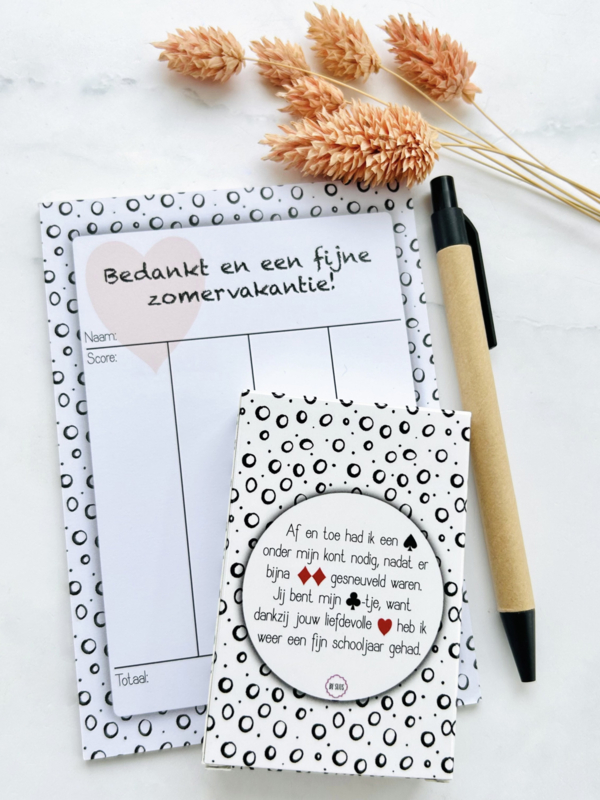 Bedankt en een fijne
zomervakantie!
Naam:
Score:
Totaal:
Af en toe had ik een ♠
onder mijn kont nodig, nadat er
bijna ♦♦ gesneuveld waren.
Jij bent mijn ♣-tje, want
dankzij jouw liefdevolle ♥ heb ik
weer een fijn schooljaar gehad.